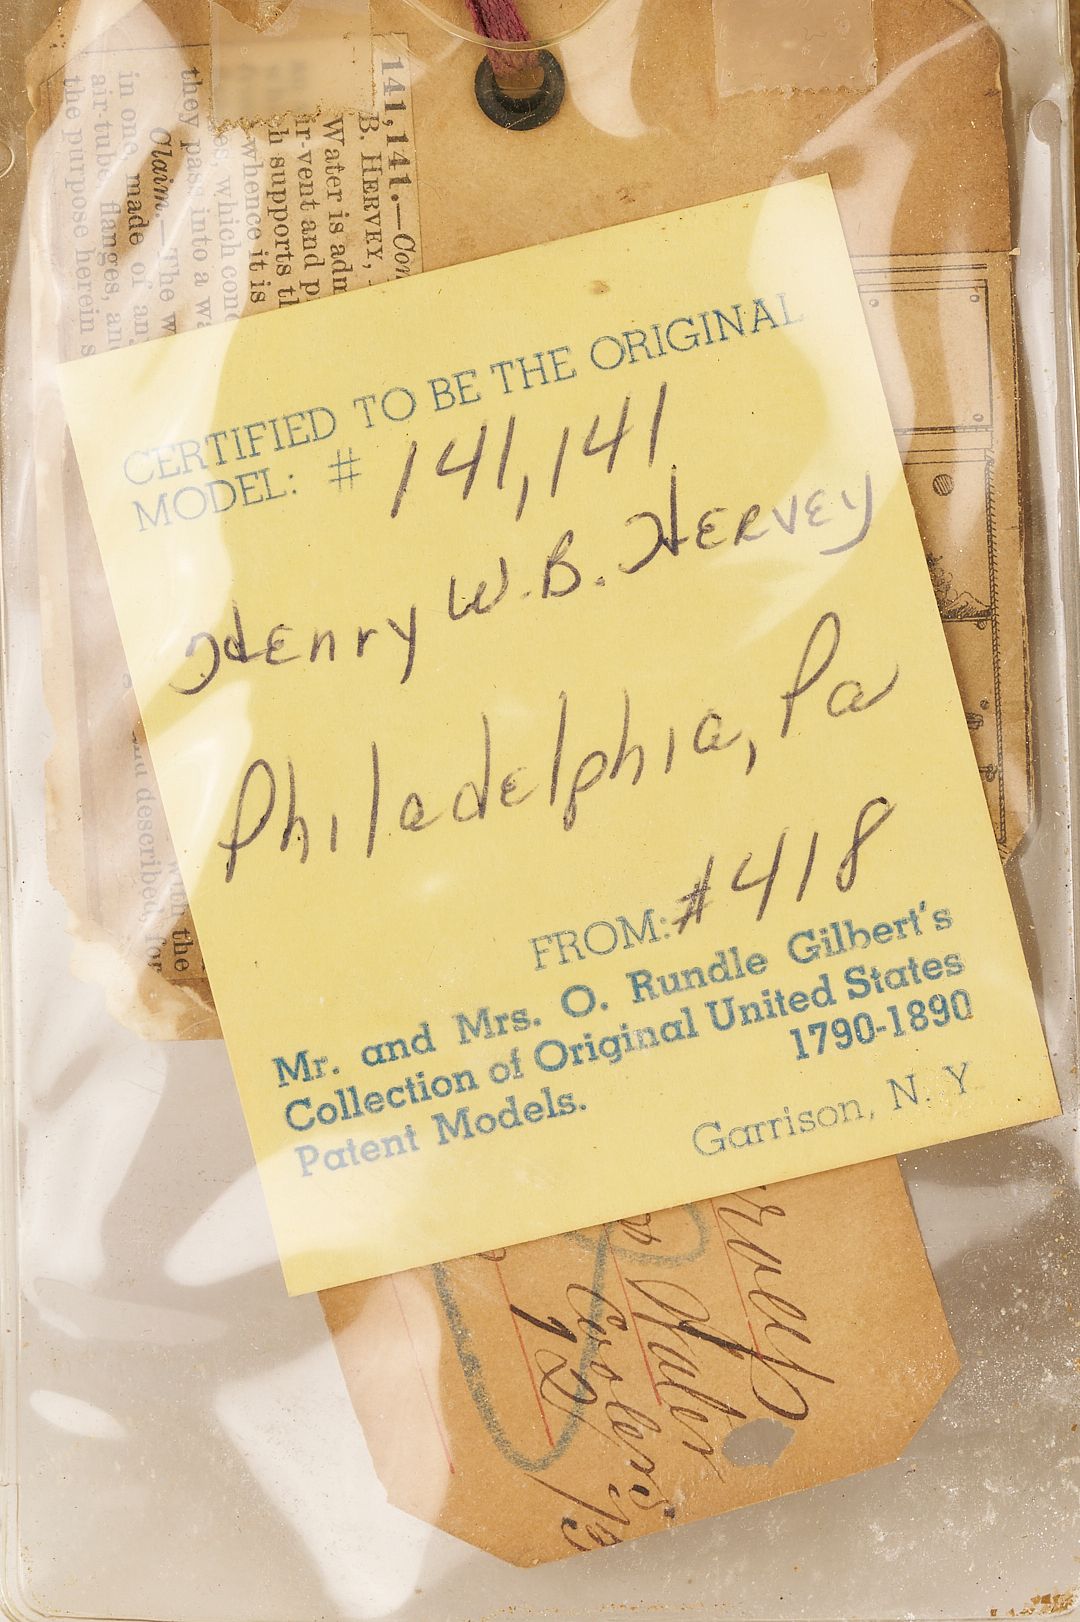 CERTIFIED TO BE THE ORIGINAL
MODEL: # 141,141
Henry W. B. HERVEY
Philadelphia, Pa
FROM: #418
Mr. and Mrs. O. Rundle Gilbert's
Collection of Original United States
Patent Models. 1790-1890
Garrison, N. Y
141,141.—Con
B. HERVEY,
Water is adm
ir-vent and p
h supports th
whence it is
es, which con
they pass into a wa
Claim.—The w
in one, made of an
air-tube, flanges, and
the purpose herein s
which the
and described, for
Water
Coolers